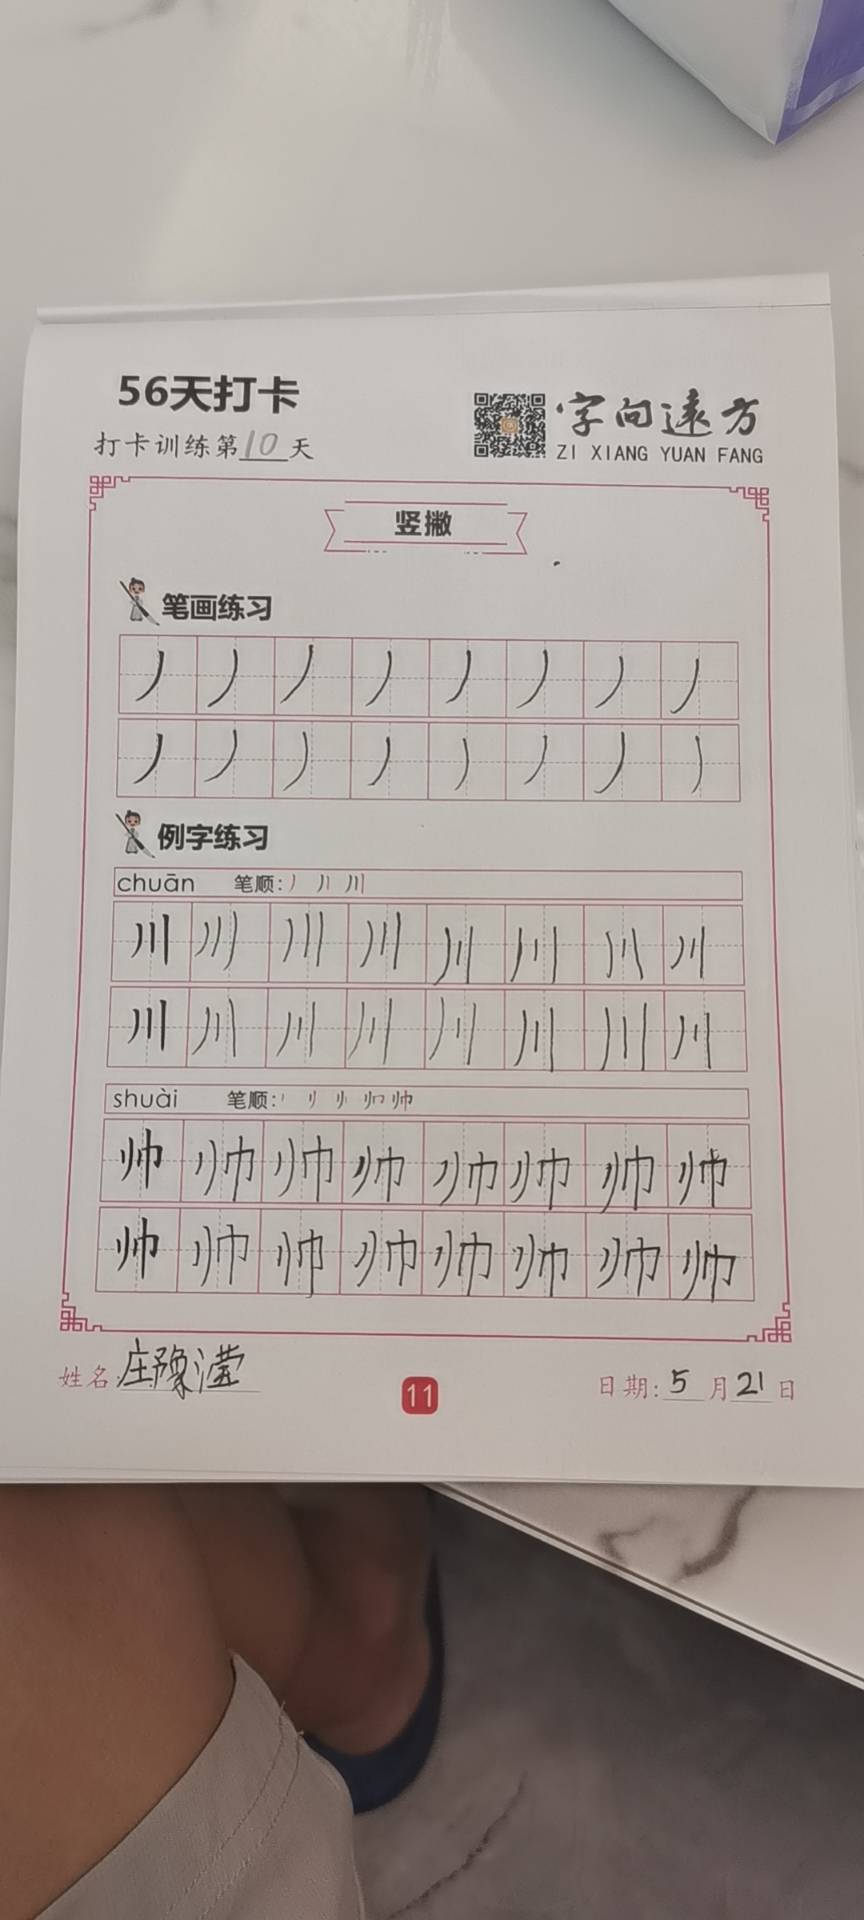 56天打卡
字向远方
打卡训练第10天
ZI XIANG YUAN FANG
竖撇
笔画练习
丿丿丿丿丿丿丿丿
丿丿丿丿丿丿丿丿
例字练习
chuān 笔顺:丿 丿丨 川
川川川川川川川川
川川川川川川川川
shuài 笔顺:
帅帅帅帅帅帅帅帅
帅帅帅帅帅帅帅帅
姓名:庄豫滢
11
日期:5月21日